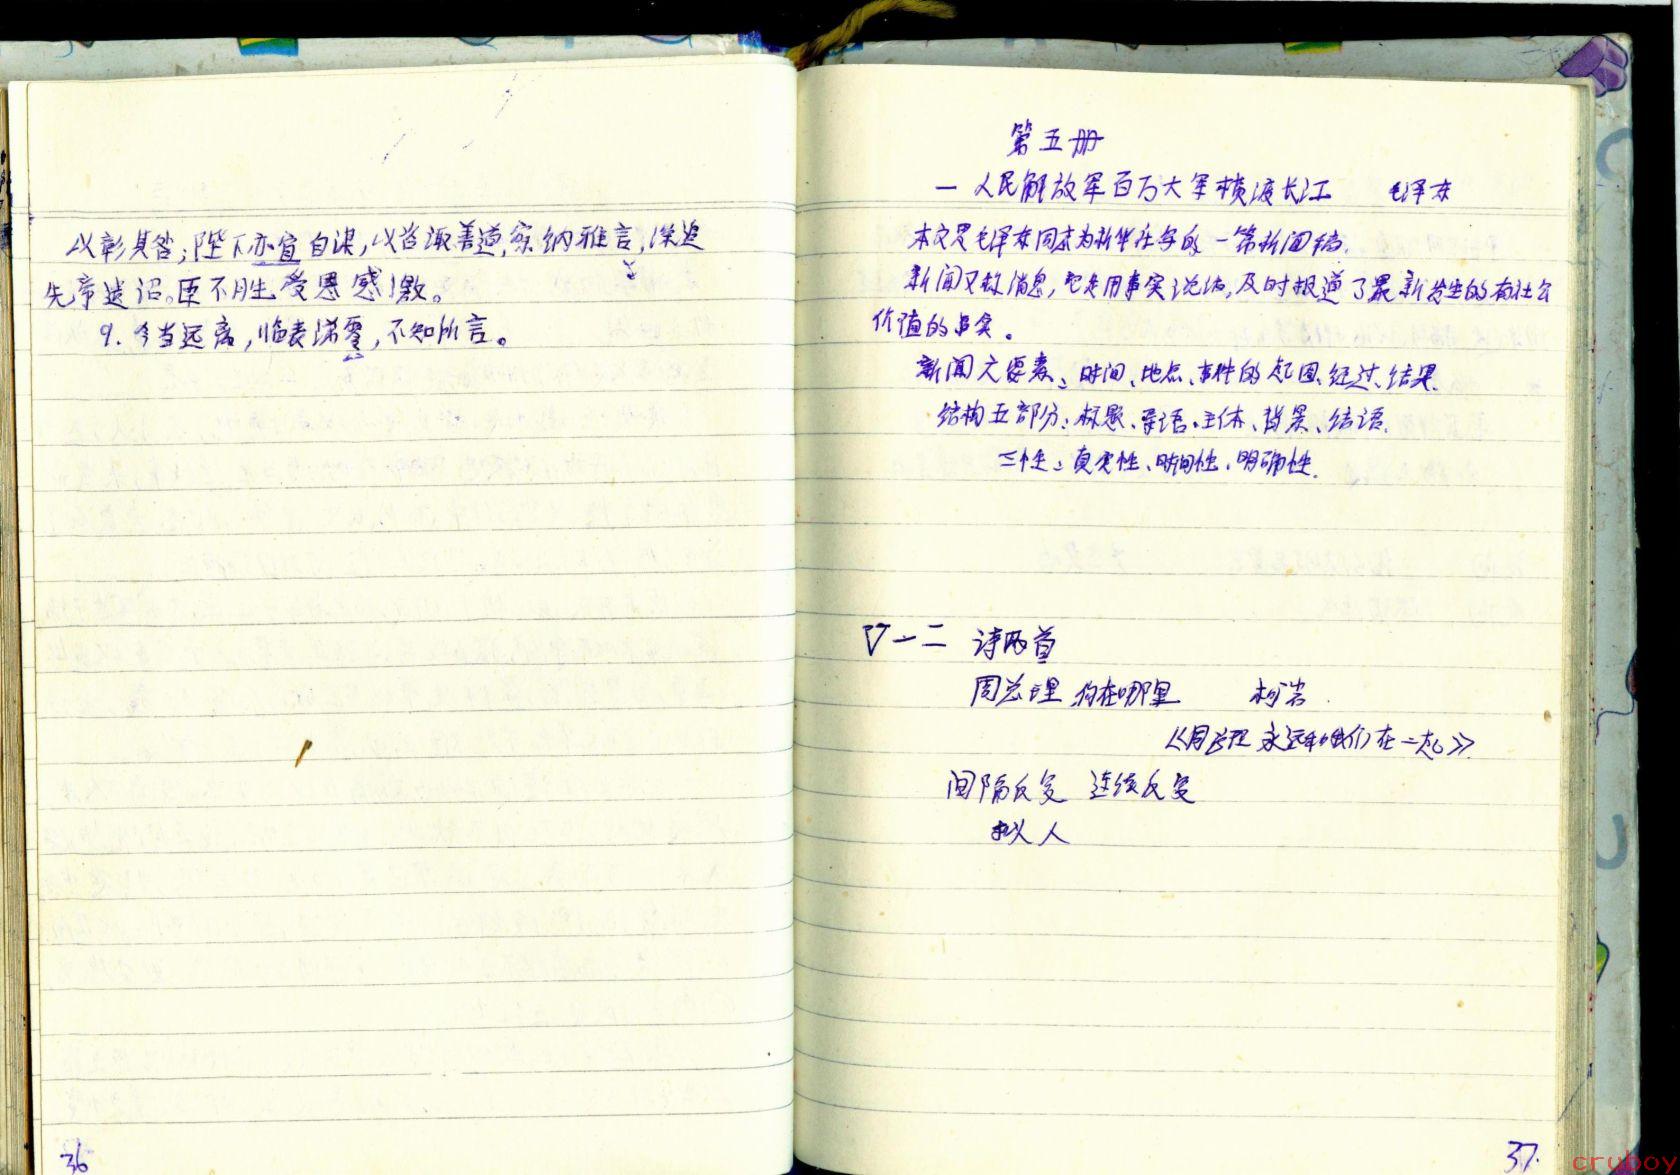 以彰其咎;陛下亦宜自谋,以咨诹善道,察纳雅言,深追
先帝遗诏。臣不胜受恩感激。
9.今当远离,临表涕零,不知所言。
36
第五册
一 人民解放军百万大军横渡长江 毛泽东
本文是毛泽东同志为新华社写的一篇新闻稿.
新闻又称消息,它是用事实说话,及时报道了最新发生的有社会
价值的事实。
新闻六要素:时间、地点、事件的起因、经过、结果.
结构五部分:标题、导语、主体、背景、结语.
三性:真实性、时间性、明确性.
▽一二 诗两首
周总理 你在哪里 柯岩.
《周总理 永远和我们在一起》
间隔反复 连续反复
拟人
37.
cruboy